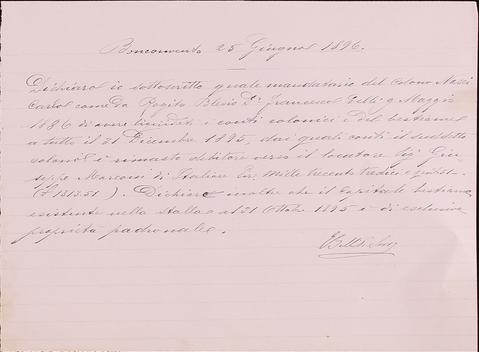 Bonconvento 25 Giugno 1896.
Dichiaro io sottoscritto quale mandatario del Colono
Carlo come da Rogito Francesco 9 Maggio
1886 di avere liquidati i conti colonici e del bestiame
a tutto il 31 Dicembre 1895, dai quali conti il suddetto
colono è rimasto debitore verso il locatore Sig. Giu-
seppe Marconi di Italiane Lire Mille trecento tredici e
(£ 1313.51). Dichiaro inoltre che il Capitale bestiame
esistente nella Stalla al 21 Ottobre 1895 è di esclusiva
proprietà padronale.